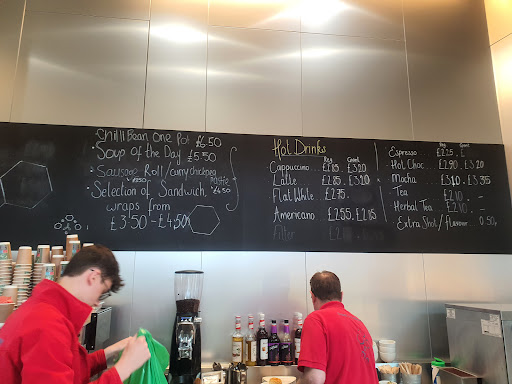 Chilli Bean One Pot £6.50
Soup of the Day £5.50
Sausage Roll / curry chickpea
Selection of Sandwich,
wraps from £4.50
£3.50 - £4.50
Hot Drinks
Reg Grant
Cappuccino £2.85 . £3.20
Latte £2.85 . £3.20
Flat White £2.75
Americano £2.55 . £2.75
Filter
Reg Grant
Espresso £2.25 . £
Hot Choc £2.90 . £3.20
Mocha £3.10 . £3.35
Tea £2.10 . -
Herbal Tea £2.10 . -
Extra Shot / flavour 0.50p